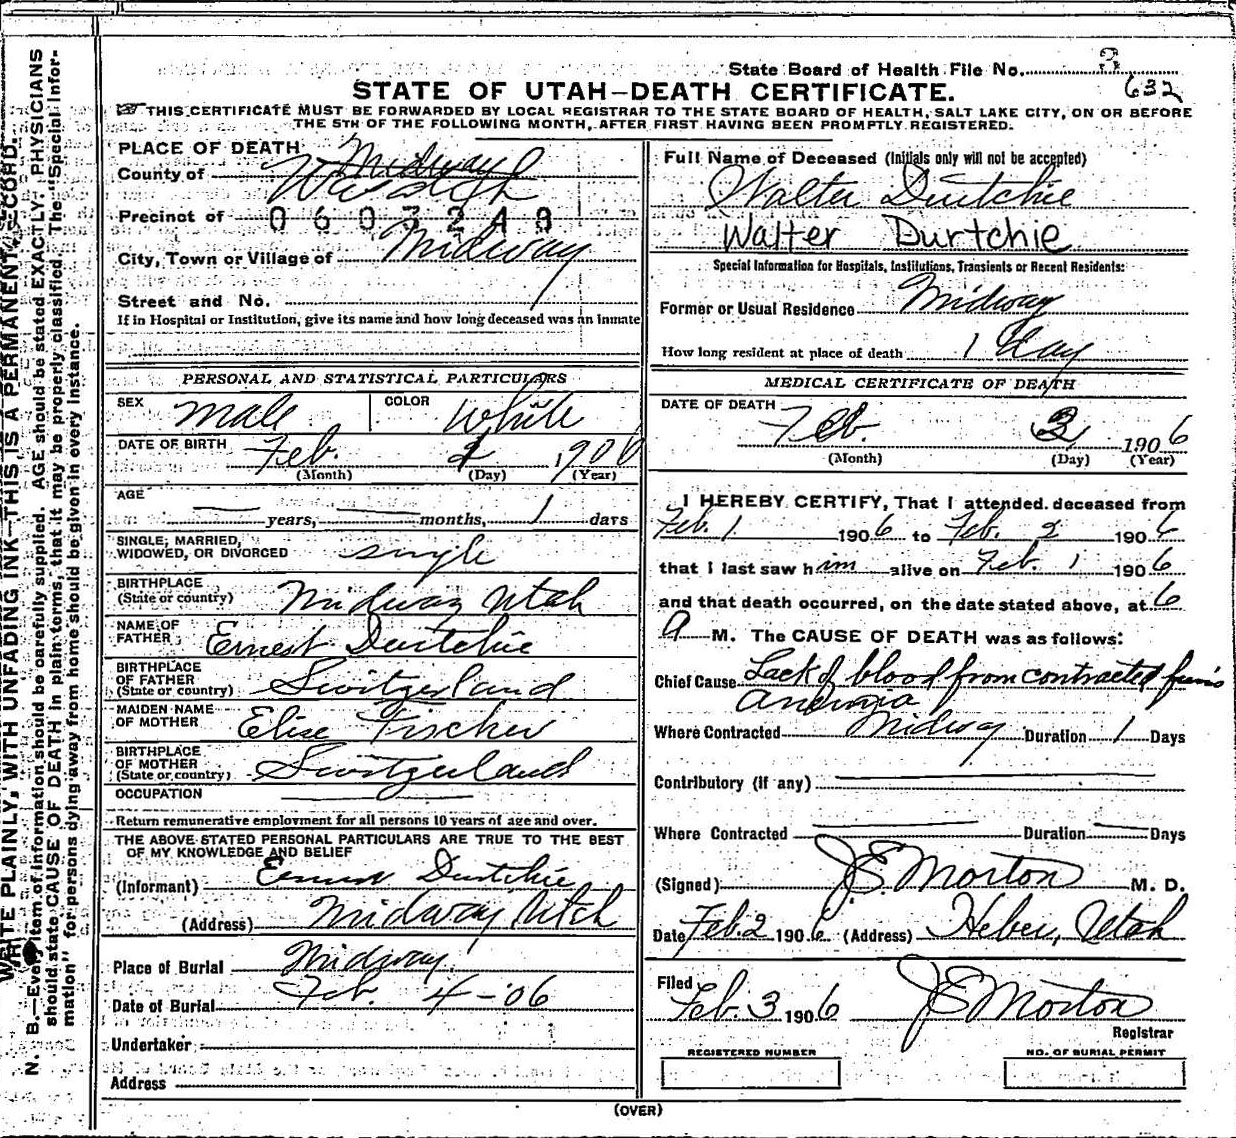 State Board of Health File No. 3
632
STATE OF UTAH—DEATH CERTIFICATE.
THIS CERTIFICATE MUST BE FORWARDED BY LOCAL REGISTRAR TO THE STATE BOARD OF HEALTH, SALT LAKE CITY, ON OR BEFORE
THE 5TH OF THE FOLLOWING MONTH, AFTER FIRST HAVING BEEN PROMPTLY REGISTERED.
PLACE OF DEATH
Midway
County of Wasatch
Precinct of 0603248
City, Town or Village of Midway
Street and No.
If in Hospital or Institution, give its name and how long deceased was an inmate
PERSONAL AND STATISTICAL PARTICULARS
SEX Male COLOR White
DATE OF BIRTH Feb. 2 1906
(Month) (Day) (Year)
AGE
years, months, 1 days
SINGLE, MARRIED,
WIDOWED, OR DIVORCED single
BIRTHPLACE
(State or country) Midway Utah
NAME OF
FATHER Ernest Durtchie
BIRTHPLACE
OF FATHER
(State or country) Switzerland
MAIDEN NAME
OF MOTHER Elise Fischer
BIRTHPLACE
OF MOTHER
(State or country) Switzerland
OCCUPATION
Return remunerative employment for all persons 10 years of age and over.
THE ABOVE STATED PERSONAL PARTICULARS ARE TRUE TO THE BEST
OF MY KNOWLEDGE AND BELIEF
(Informant) Ernest Durtchie
(Address) Midway Utah
Place of Burial Midway
Date of Burial Feb. 4-06
Undertaker
Address
Full Name of Deceased (Initials only will not be accepted)
Walter Durtchie
Walter Durtchie
Special Information for Hospitals, Institutions, Transients or Recent Residents:
Former or Usual Residence Midway
How long resident at place of death 1 day
MEDICAL CERTIFICATE OF DEATH
DATE OF DEATH
Feb. 1906
(Month) (Day) (Year)
I HEREBY CERTIFY, That I attended deceased from
Feb. 1 1906 to Feb. 2 1906
that I last saw him alive on Feb. 1 1906
and that death occurred, on the date stated above, at 6
A M. The CAUSE OF DEATH was as follows:
Chief Cause Lack of blood from contracted
Anemia
Where Contracted Midway Duration 1 Days
Contributory (if any)
Where Contracted Duration Days
(Signed) J E Morton M. D.
Date Feb. 2 1906 (Address) Heber, Utah
Filed
Feb. 3 1906 J E Morton
Registrar
REGISTERED NUMBER NO. OF BURIAL PERMIT
(OVER)
WRITE PLAINLY, WITH UNFADING INK—THIS IS A PERMANENT RECORD.
N. B.—Every item of information should be carefully supplied. AGE should be stated EXACTLY. PHYSICIANS
should state CAUSE OF DEATH in plain terms, that it may be properly classified. The "Special Infor-
mation" for persons dying away from home should be given in every instance.